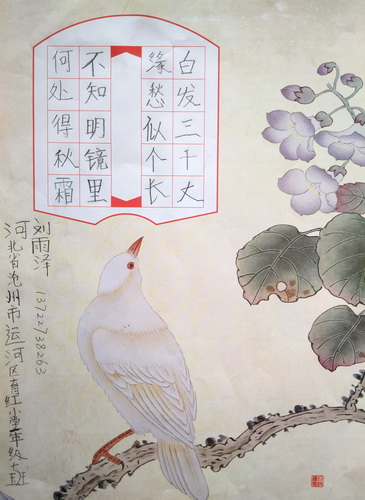 白发三千大
缘愁似个长
不知明镜里
何处得秋霜
刘雨泽 13722738263
河北省沧州市运河区育红小学年级七班